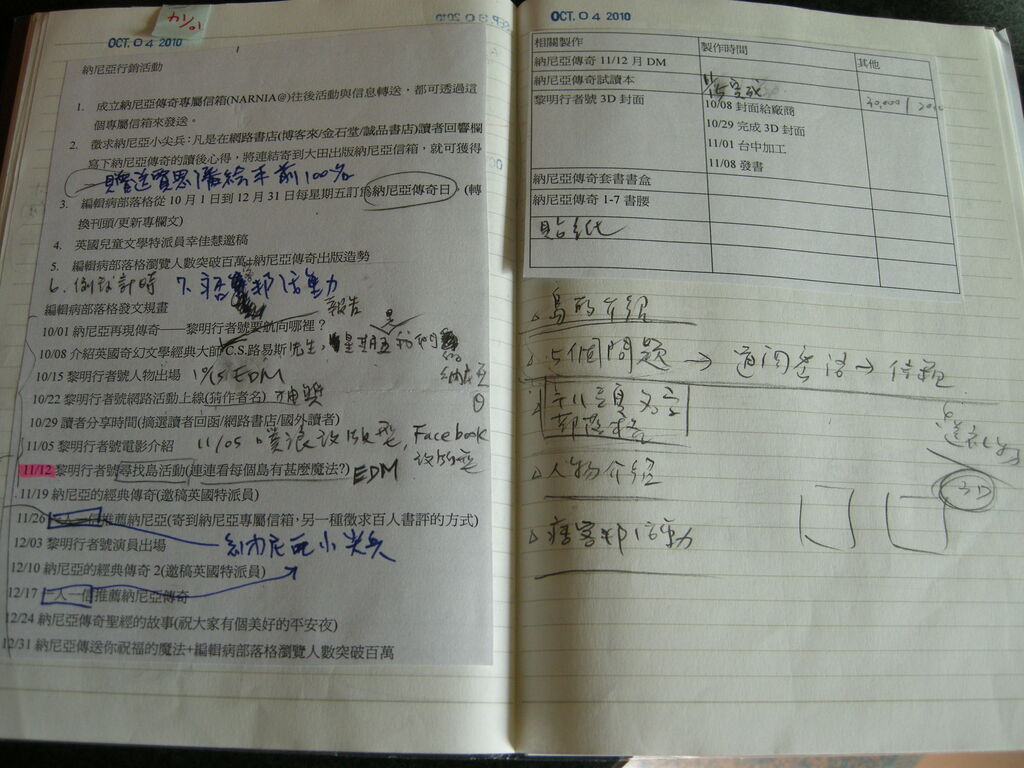 OCT. 04 2010
納尼亞行銷活動
1. 成立納尼亞傳奇專屬信箱(NARNIA@)往後活動與信息轉送，都可透過這
個專屬信箱來發送。
2. 徵求納尼亞小尖兵:凡是在網路書店(博客來/金石堂/誠品書店)讀者回響欄
寫下納尼亞傳奇的讀後心得，將連結寄到大田出版納尼亞信箱，就可獲得
前100名
3. 編輯病部落格從 10 月 1 日到 12 月 31 日每星期五訂為納尼亞傳奇日，(轉
換刊頭/更新專欄文)
4. 英國兒童文學特派員幸佳慧邀稿
5. 編輯病部落格瀏覽人數突破百萬+納尼亞傳奇出版造勢
6. 倒數計時 7. 痞客邦活動
編輯病部落格發文規畫 報告
10/01 納尼亞再現傳奇——黎明行者號要航向哪裡？
10/08 介紹英國奇幻文學經典大師 C.S.路易斯先生, 星期五是我們的納尼亞日
10/15 黎明行者號人物出場 10/15 EDM
10/22 黎明行者號網路活動上線(猜作者名)
10/29 讀者分享時間(摘選讀者回函/網路書店/國外讀者)
11/05 黎明行者號電影介紹 11/05 噗浪改版型, Facebook
改版型
11/12 黎明行者號尋找島活動(連連看每個島有甚麼魔法?) EDM
11/19 納尼亞的經典傳奇(邀稿英國特派員)
11/26 一人一信推薦納尼亞(寄到納尼亞專屬信箱，另一種徵求百人書評的方式)
12/03 黎明行者號演員出場 納尼亞小尖兵
12/10 納尼亞的經典傳奇 2(邀稿英國特派員)
12/17 一人一信推薦納尼亞傳奇
12/24 納尼亞傳奇聖經的故事(祝大家有個美好的平安夜)
12/31 納尼亞傳送你祝福的魔法+編輯病部落格瀏覽人數突破百萬
OCT. 04 2010
相關製作 製作時間 其他
納尼亞傳奇 11/12 月 DM
納尼亞傳奇試讀本 完成
黎明行者號 3D 封面 10/08 封面給廠商 30,000
10/29 完成 3D 封面
11/01 台中加工
11/08 發書
納尼亞傳奇套書書盒
納尼亞傳奇 1-7 書腰
貼紙
島的介紹
5個問題 → 通關密語 →
部落格
人物介紹
3D
痞客邦活動